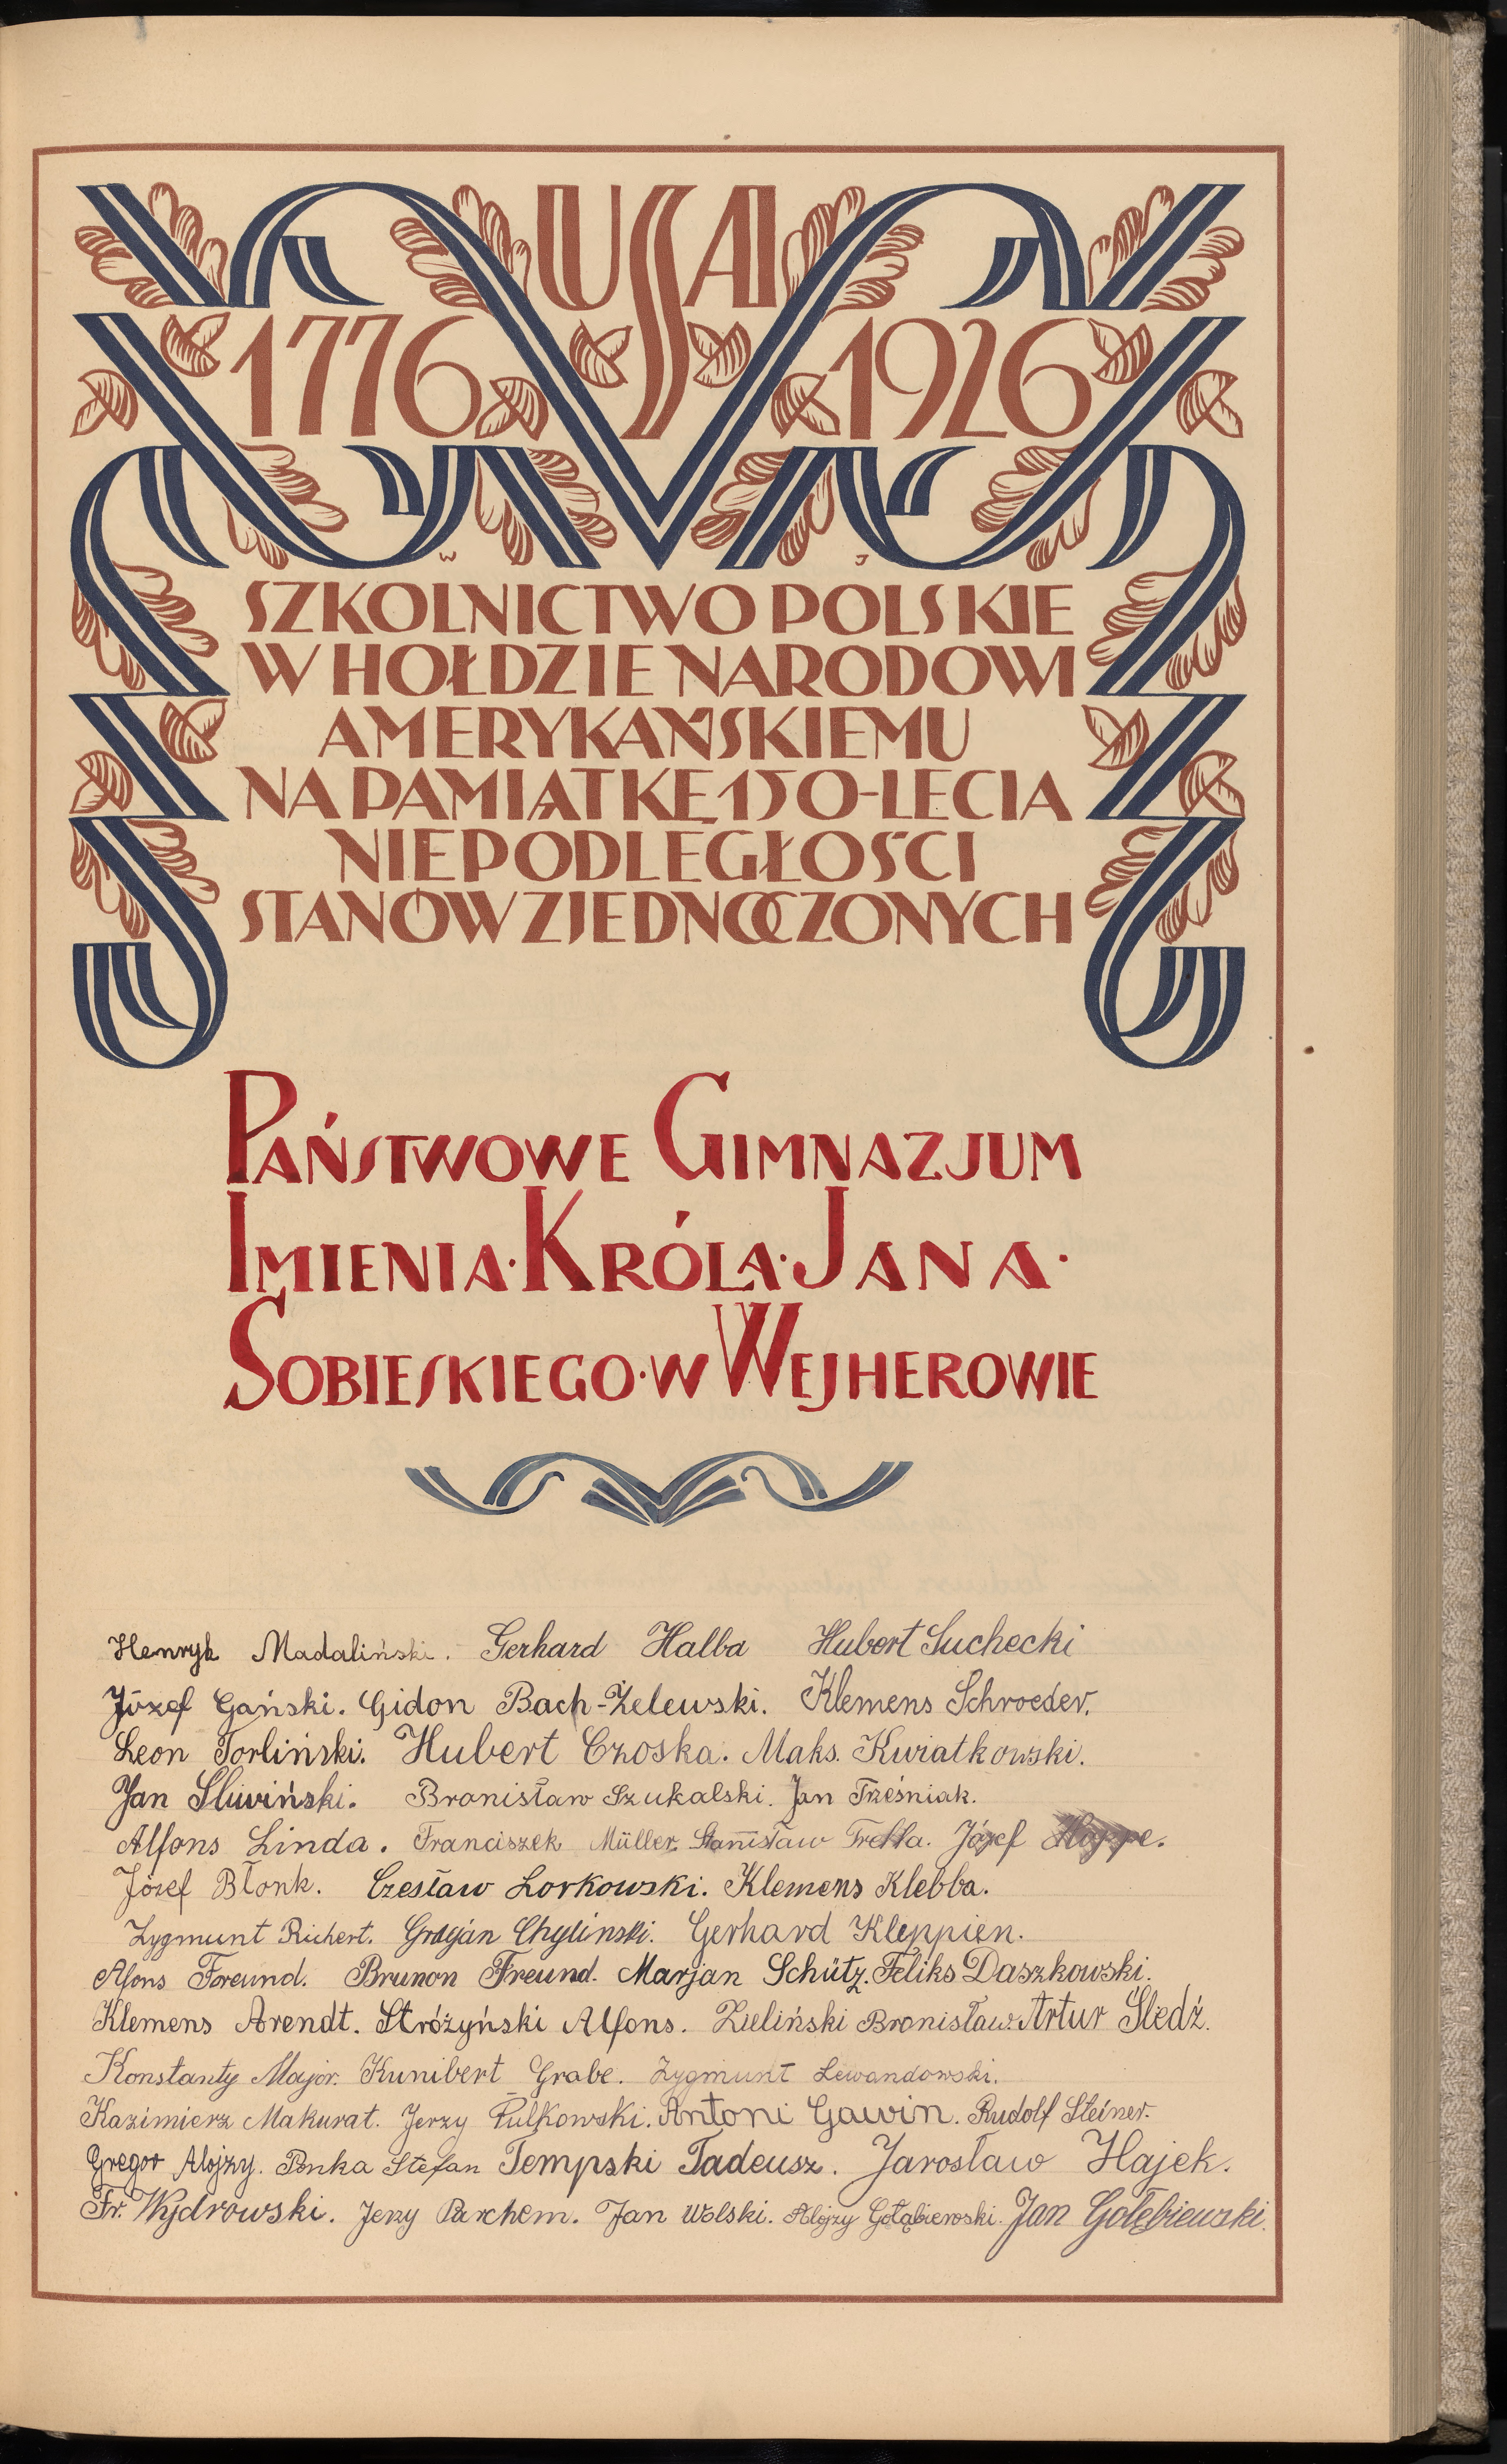 USA
1776 1926
W J
SZKOLNICTWO POLSKIE
W HOŁDZIE NARODOWI
AMERYKAŃSKIEMU
NA PAMIĄTKĘ 150-LECIA
NIEPODLEGŁOŚCI
STANÓW ZJEDNOCZONYCH
PAŃSTWOWE GIMNAZJUM
IMIENIA·KRÓLA·JANA·
SOBIESKIEGO·W WEJHEROWIE
Henryk Madaliński. Gerhard Halba Hubert Suchecki
Józef Gański. Gidon Bach-Żelewski. Klemens Schroeder.
Leon Torliński. Hubert Czoska. Maks. Kwiatkowski.
Jan Śliwiński. Bronisław Szukalski. Jan Trześniak.
Alfons Linda. Franciszek Müller. Stanisław Trella. Józef Hoppe.
Józef Błonk. Czesław Lorkowski. Klemens Klebba.
Zygmunt Richert. Gracjan Chyliński. Gerhard Kleppien.
Alfons Foreund. Brunon Freund. Marjan Schütz. Feliks Daszkowski.
Klemens Arendt. Stróżyński Alfons. Zieliński Bronisław. Artur Śledź.
Konstanty Major. Kunibert Grabe. Zygmunt Lewandowski.
Kazimierz Makurat. Jerzy Pułkowski. Antoni Gawin. Rudolf Steiner.
Gregor Alojzy. Ponka Stefan Tempski Tadeusz. Jarosław Hajek.
Fr. Wydrowski. Jerzy Parchem. Jan Wolski. Alojzy Gołąbiewski. Jan Gołębiewski.